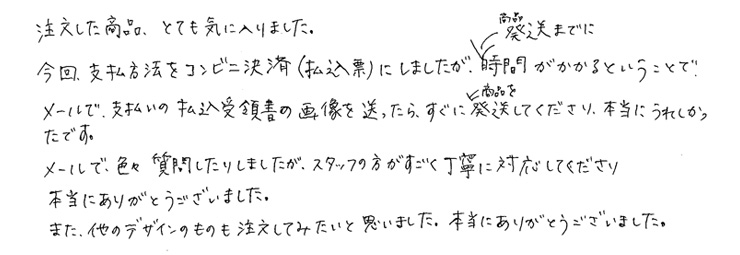 注文した商品、とても気に入りました。
商品
発送までに
今回、支払方法をコンビニ決済(払込票)にしましたが、時間がかかるということで、
商品を
メールで、支払いの払込受領書の画像を送ったら、すぐに発送してくださり、本当にうれしかっ
たです。
メールで、色々質問したりしましたが、スタッフの方がすごく丁寧に対応してくださり
本当にありがとうございました。
また、他のデザインのものも注文してみたいと思いました。本当にありがとうございました。